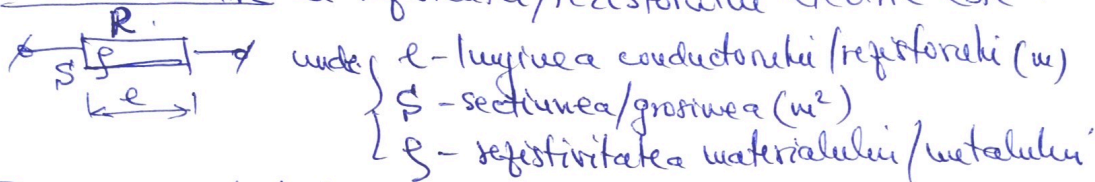 R
unde: ℓ - lungimea conductorului/rezistorului (m)
S
ρ
S - secțiunea/grosimea (m²)
ℓ
ρ - rezistivitatea materialului/metalului